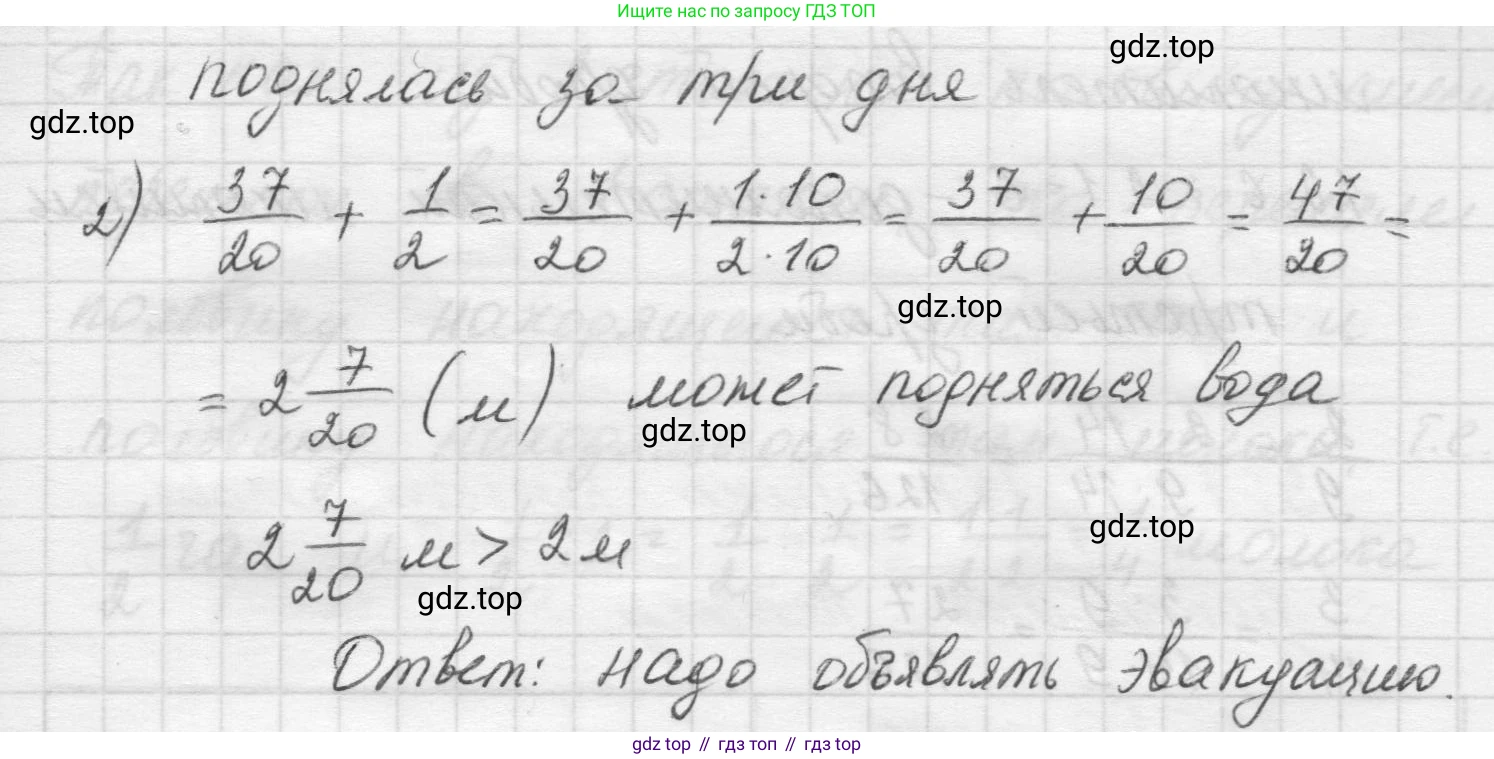 Ищите нас по запросу ГДЗ ТОП
gdz.top
поднялась за три дня
gdz.top
2) 37/20 + 1/2 = 37/20 + 1·10/2·10 = 37/20 + 10/20 = 47/20 =
gdz.top
= 2 7/20 (м) может подняться вода
gdz.top
2 7/20 м > 2 м
gdz.top
gdz.top
Ответ: надо объявлять эвакуацию.
gdz top // гдз топ // gdz top